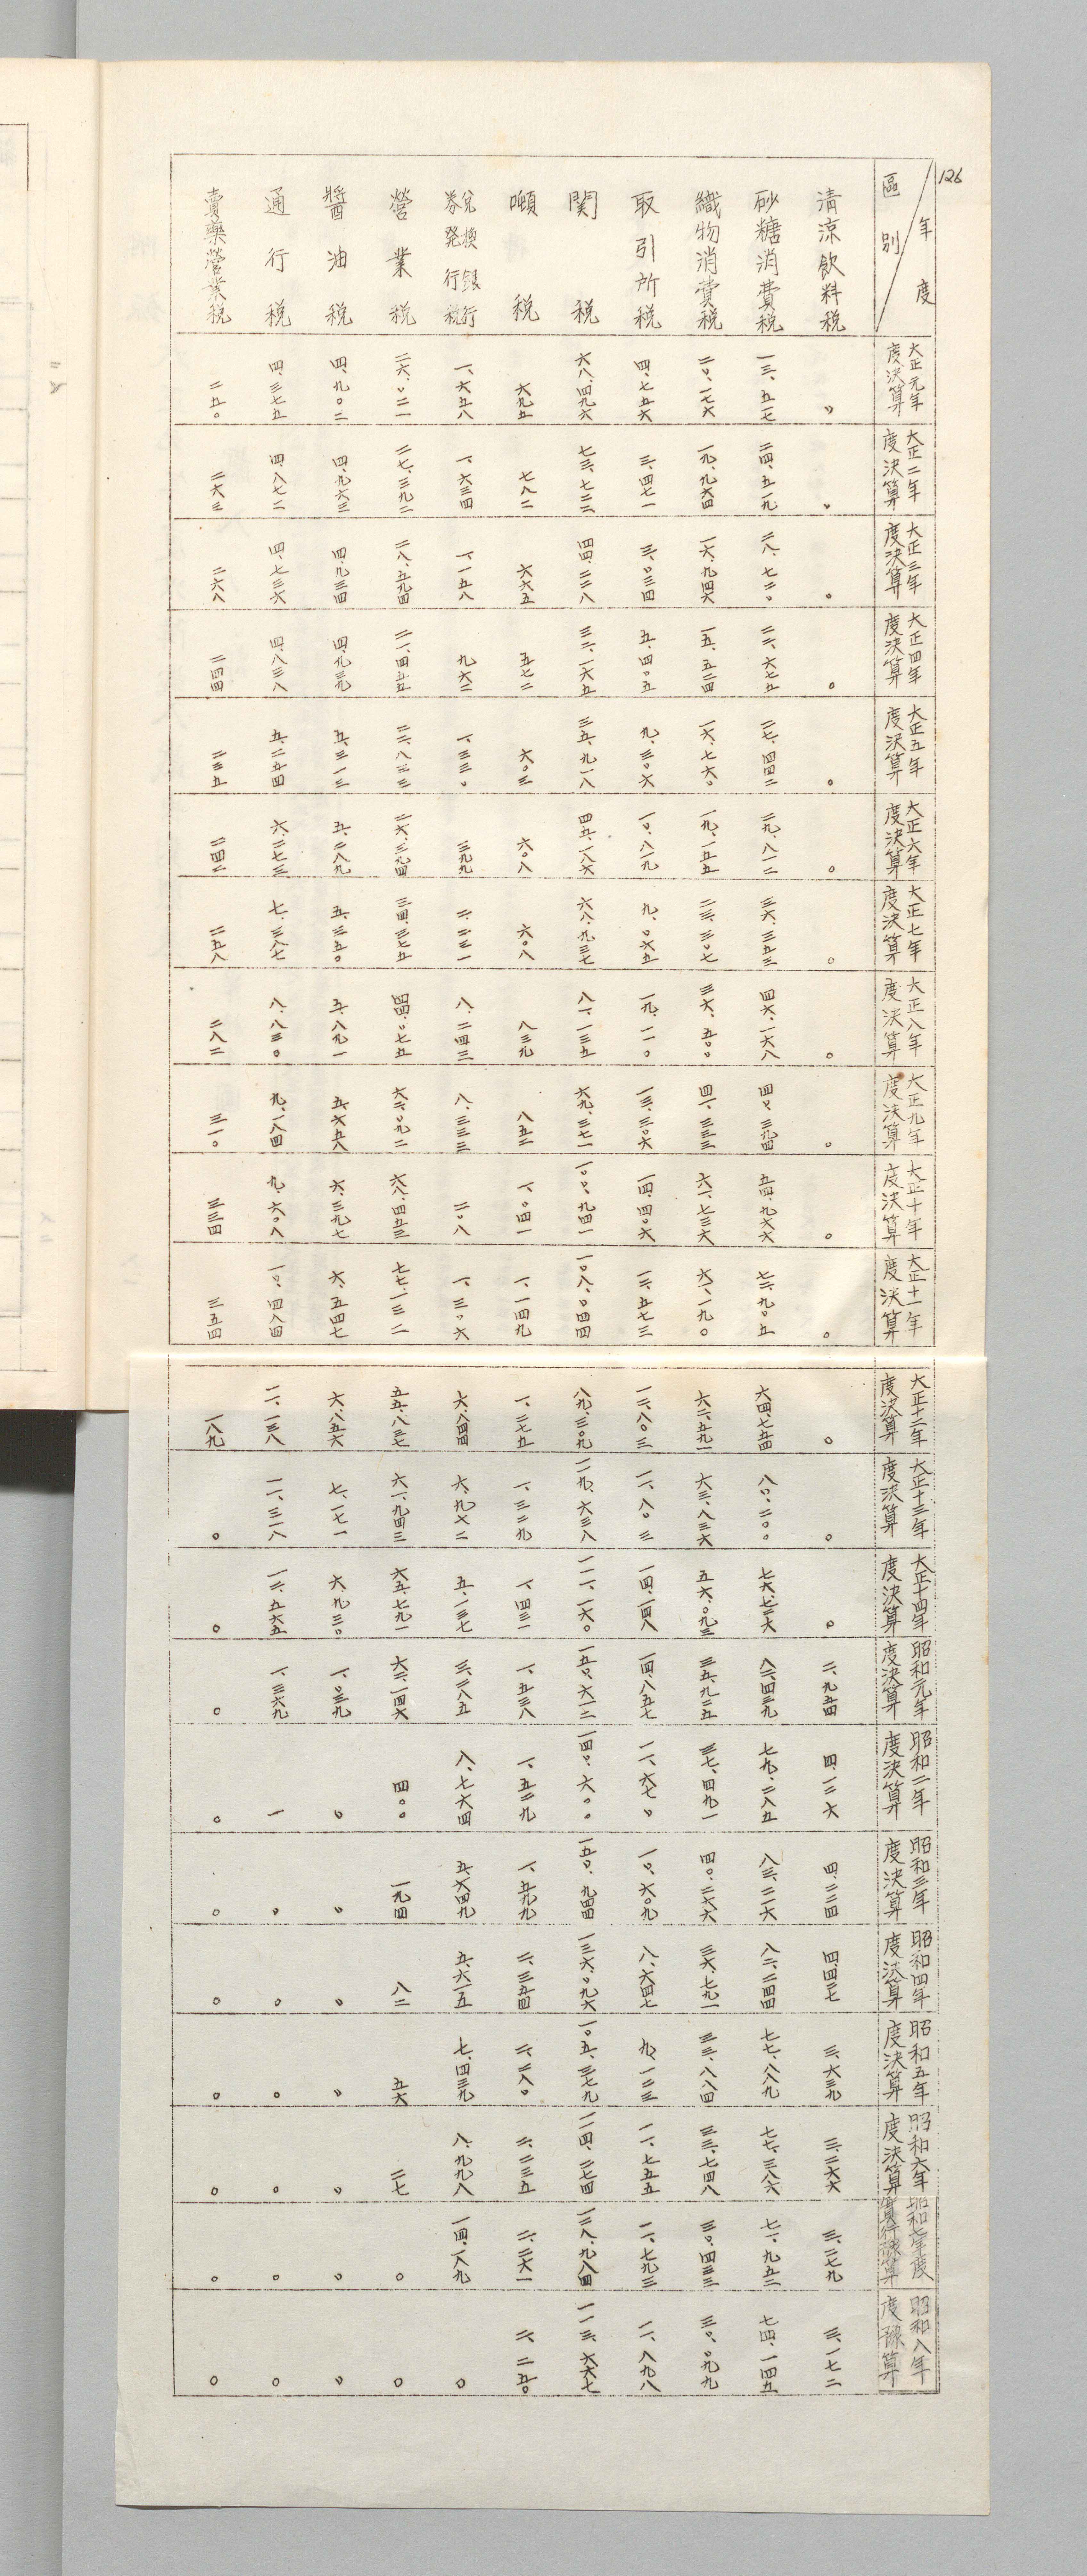 126
年度
區別
大正元年度決算 大正二年度決算 大正三年度決算 大正四年度決算 大正五年度決算 大正六年度決算 大正七年度決算 大正八年度決算 大正九年度決算 大正十年度決算 大正十一年度決算 大正十二年度決算 大正十三年度決算 大正十四年度決算 昭和元年度決算 昭和二年度決算 昭和三年度決算 昭和四年度決算 昭和五年度決算 昭和六年度決算 昭和七年度實行豫算 昭和八年度豫算
清涼飲料税 〇 〇 〇 〇 〇 〇 〇 〇 〇 〇 〇 〇 〇 〇 二、九五四 四、一二六 四、二三四 四、四三七 三、六三九 三、二六六 三、二七九 三、一七二
砂糖消費税 一三、五一七 二四、五一九 二八、七二〇 二二、六七五 二七、四四二 二九、八一二 三六、三五三 四六、一六八 四〇、三九四 五四、九六六 七二、九〇五 六四、七五四 八〇、二〇〇 七六、七二六 八二、四三九 七九、二八五 八三、二一六 八二、二四四 七七、八八九 七七、三八六 七一、九五二 七四、一四五
織物消費税 二〇、一七六 一九、九六四 一六、九四六 一五、五二四 一六、七六〇 一九、一五五 二三、三〇七 三六、五〇〇 四一、三三三 六一、七三六 六一、一九〇 六二、五九一 六三、八三六 五六、〇九三 三五、九二五 三七、四九一 四〇、二六六 三六、七九一 三三、八八四 三三、七四八 三〇、四三三 三〇、〇九九
取引所税 四、七五六 三、四七一 三、〇三四 五、四〇五 九、三〇六 一〇、八一九 九、〇六五 一九、一一〇 一三、三〇六 一四、四〇六 一二、五七三 一二、八〇三 一一、八〇三 一四、一四八 一四、八五七 一一、六七〇 一〇、六〇九 八、六四七 九、一二三 一一、七五五 一一、七九三 一一、八九八
関税 六八、四九六 七三、七二二 四四、二二八 三二、一六五 三五、九一八 四五、一八六 六八、九三七 八一、一三五 六九、三七一 一〇〇、九四一 一〇八、〇四四 八九、三〇九 一一九、六三八 一一一、一六〇 一五〇、六一二 一四〇、六〇〇 一五〇、九四四 一三六、〇九六 一〇五、三七九 一一四、二七四 一二八、九八四 一一三、六六七
噸税 六九五 七八二 六六五 五七二 六〇三 六〇八 六〇八 八三九 八五二 一、〇四一 一、一四九 一、二七五 一、三二九 一、四三一 一、五三八 一、五二九 一、五九九 二、三五四 二、二八〇 二、二三五 二、二六一 二、二五〇
兌換銀行券発行税 一、六五八 一、六三四 一、一五八 九六二 一、三三〇 三九九 二、二三一 八、二四三 八、三三三 二〇八 一、三〇六 六、八四四 六、九六二 五、一三七 三、二八五 八、七六四 五、六四九 五、六一五 七、四三九 八、九九八 一四、一八九 〇
營業税 二六、〇二一 二七、三九二 二八、五九四 二一、四五五 二二、八三三 二六、三九四 三四、三七五 四四、〇七五 六二、〇九二 六八、四五三 七七、一三二 五五、八三七 六一、九四三 六五、七九一 六二、一四六 四〇〇 一九四 八二 五六 二七 〇 〇
醬油税 四、九〇二 四、九六三 四、九三四 四、九三九 五、三一三 五、二八九 五、三五〇 五、八九一 五、六五八 六、三九七 六、五四七 六、八五六 七、一七一 六、九三〇 一、〇三九 〇 〇 〇 〇 〇 〇 〇
通行税 四、三七五 四、八七二 四、七三六 四、八三八 五、二五四 六、二七三 七、三八七 八、八三〇 九、一八四 九、六〇八 一〇、四八四 一一、一三八 一一、三一八 一二、五六五 一、三六九 一 〇 〇 〇 〇 〇 〇
賣藥營業税 二五〇 二六三 二六八 二四四 二三五 二四二 二五八 二八二 三一〇 三三四 三五四 一八九 〇 〇 〇 〇 〇 〇 〇 〇 〇 〇